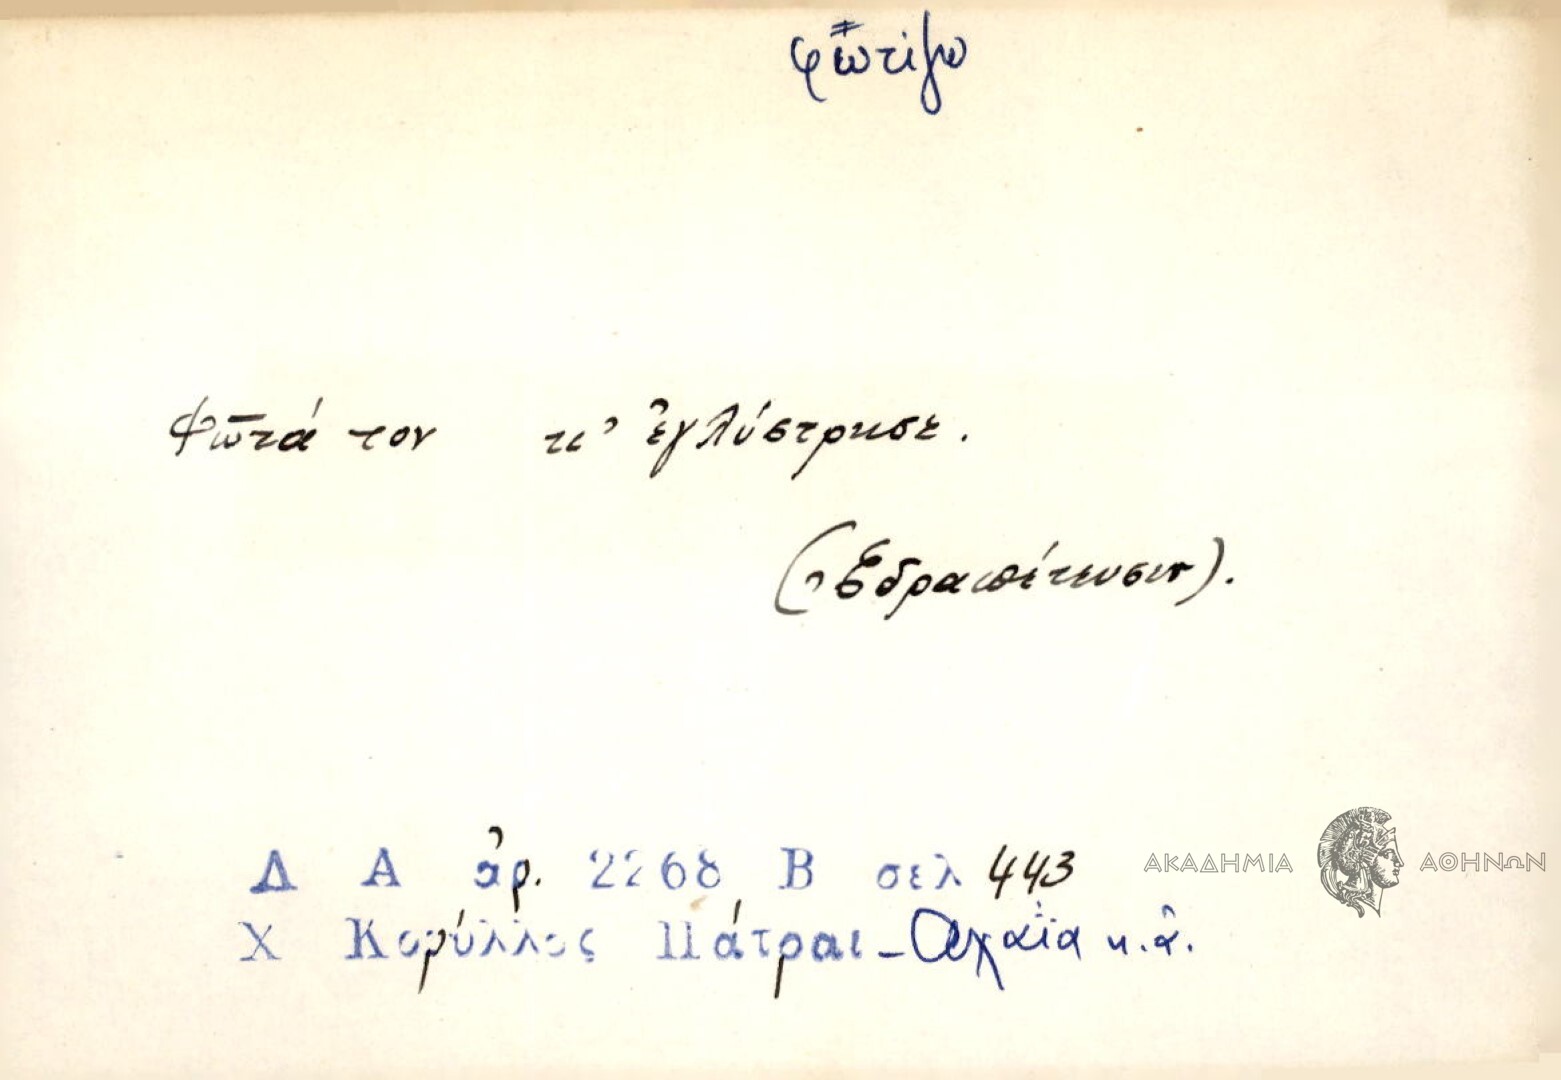 φωτίζω
Φωτά τον κι' ἐγλύστρησε.
(Ἐδραπέτευσεν).
Δ Α ἀρ. 2268 Β σελ 443
ΑΚΑΔΗΜΙΑ ΑΘΗΝΩΝ
Χ Κορύλλος Πάτραι - Ἀχαΐα κ.ἀ.